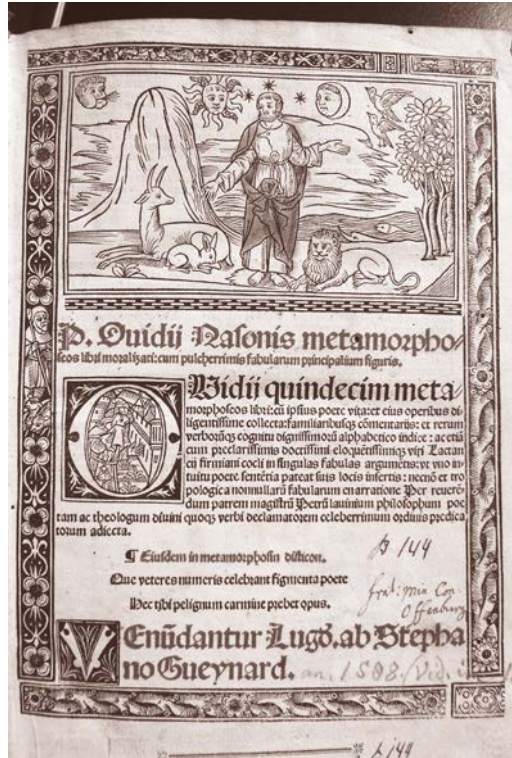 P. Ouidij Nasonis metamorpho-
seos libri moralizati: cum pulcherrimis fabularum principalium figuris.
OVidij quindecim meta-
morphoseos libri: cū ipsius poete vita: et eius operibus di-
ligentissime collecta: familiaribusq̃ cōmentarijs: et rerum
verborūq̃ cognitu dignissimorū alphabetico indice: ac etiā
cum preclarissimis doctissimi eloquētissimiq̃ viri Lactan
cij firmiani coeli in singulas fabulas argumētis: vt vno in-
tuitu poete sentētia pateat suis locis insertis: necnō et tro
pologica nonnullarū fabularum enarratione Per reuerē-
dum patrem magistrū Petrū lauinium philosophum poe
tam ac theologum diuini quoq̃ verbi declamatorem celeberrimum ordinis predica
torum adiecta.
¶ Eiusdem in metamorphosin disticon.
Que veteres numeris celebrant figmenta poete
Hec tibi pelignum carmine prebet opus.
B 144
frat: min Con
Offenburg
VEnūdantur Lugd. ab Stepha
no Gueynard. an. 1508. /Vid.
L 144